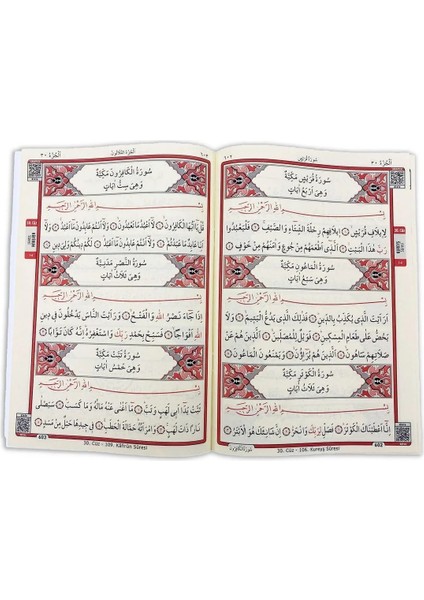 اَلْجُزْءُ ٣٠ سُورَةُ قُرَيْشٍ ٦٠٢
سُورَةُ قُرَيْشٍ مَكِّيَّةٌ
وَهِيَ اَرْبَعُ اٰيَاتٍ
بِسْمِ اللّٰهِ الرَّحْمٰنِ الرَّحِيمِ
لِاِيلَافِ قُرَيْشٍ ۙ ﴿١﴾ اِيلَافِهِمْ رِحْلَةَ الشِّتَٓاءِ وَالصَّيْفِ ﴿٢﴾ فَلْيَعْبُدُوا
رَبَّ هٰذَا الْبَيْتِ ﴿٣﴾ اَلَّذِٓي اَطْعَمَهُمْ مِنْ جُوعٍ وَاٰمَنَهُمْ مِنْ خَوْفٍ ﴿٤﴾
سُورَةُ الْمَاعُونِ مَكِّيَّةٌ
وَهِيَ سَبْعُ اٰيَاتٍ
بِسْمِ اللّٰهِ الرَّحْمٰنِ الرَّحِيمِ
اَرَاَيْتَ الَّذِي يُكَذِّبُ بِالدِّينِ ﴿١﴾ فَذٰلِكَ الَّذِي يَدُعُّ الْيَتِيمَ ﴿٢﴾ وَلَا
يَحُضُّ عَلٰى طَعَامِ الْمِسْكِينِ ﴿٣﴾ فَوَيْلٌ لِلْمُصَلِّينَ ﴿٤﴾ اَلَّذِينَ هُمْ عَنْ
صَلَاتِهِمْ سَاهُونَ ﴿٥﴾ اَلَّذِينَ هُمْ يُرَٓاؤُنَ ﴿٦﴾ وَيَمْنَعُونَ الْمَاعُونَ ﴿٧﴾
سُورَةُ الْكَوْثَرِ مَكِّيَّةٌ
وَهِيَ ثَلَاثُ اٰيَاتٍ
بِسْمِ اللّٰهِ الرَّحْمٰنِ الرَّحِيمِ
اِنَّٓا اَعْطَيْنَاكَ الْكَوْثَرَ ﴿١﴾ فَصَلِّ لِرَبِّكَ وَانْحَرْ ﴿٢﴾ اِنَّ شَانِئَكَ هُوَ الْاَبْتَرُ ﴿٣﴾
602
30. Cüz - 106. Kureyş Sûresi
سُورَةُ الْكَافِرُونَ
اَلْجُزْءُ ٣٠ اَلْجُزْءُ الثَّلَاثُونَ ٦٠٣
سُورَةُ الْكَافِرُونَ مَكِّيَّةٌ
وَهِيَ سِتُّ اٰيَاتٍ
بِسْمِ اللّٰهِ الرَّحْمٰنِ الرَّحِيمِ
قُلْ يَٓا اَيُّهَا الْكَافِرُونَ ﴿١﴾ لَٓا اَعْبُدُ مَا تَعْبُدُونَ ﴿٢﴾ وَلَٓا اَنْتُمْ عَابِدُونَ مَٓا اَعْبُدُ ﴿٣﴾ وَلَٓا
اَنَا۬ عَابِدٌ مَا عَبَدْتُمْ ﴿٤﴾ وَلَٓا اَنْتُمْ عَابِدُونَ مَٓا اَعْبُدُ ﴿٥﴾ لَكُمْ دِينُكُمْ وَلِيَ دِينِ ﴿٦﴾
سُورَةُ النَّصْرِ مَدَنِيَّةٌ
وَهِيَ ثَلَاثُ اٰيَاتٍ
بِسْمِ اللّٰهِ الرَّحْمٰنِ الرَّحِيمِ
اِذَا جَٓاءَ نَصْرُ اللّٰهِ وَالْفَتْحُ ﴿١﴾ وَرَاَيْتَ النَّاسَ يَدْخُلُونَ فِي دِينِ
اللّٰهِ اَفْوَاجًا ﴿٢﴾ فَسَبِّحْ بِحَمْدِ رَبِّكَ وَاسْتَغْفِرْهُ اِنَّهُ كَانَ تَوَّابًا ﴿٣﴾
سُورَةُ تَبَّتْ مَكِّيَّةٌ
وَهِيَ خَمْسُ اٰيَاتٍ
بِسْمِ اللّٰهِ الرَّحْمٰنِ الرَّحِيمِ
تَبَّتْ يَدَٓا اَبِي لَهَبٍ وَتَبَّ ﴿١﴾ مَٓا اَغْنٰى عَنْهُ مَالُهُ وَمَا كَسَبَ ﴿٢﴾ سَيَصْلٰى
نَارًا ذَاتَ لَهَبٍ ﴿٣﴾ وَامْرَاَتُهُ حَمَّالَةَ الْحَطَبِ ﴿٤﴾ فِي جِيدِهَا حَبْلٌ مِنْ مَسَدٍ ﴿٥﴾
603
30. Cüz - 109. Kâfirûn Sûresi